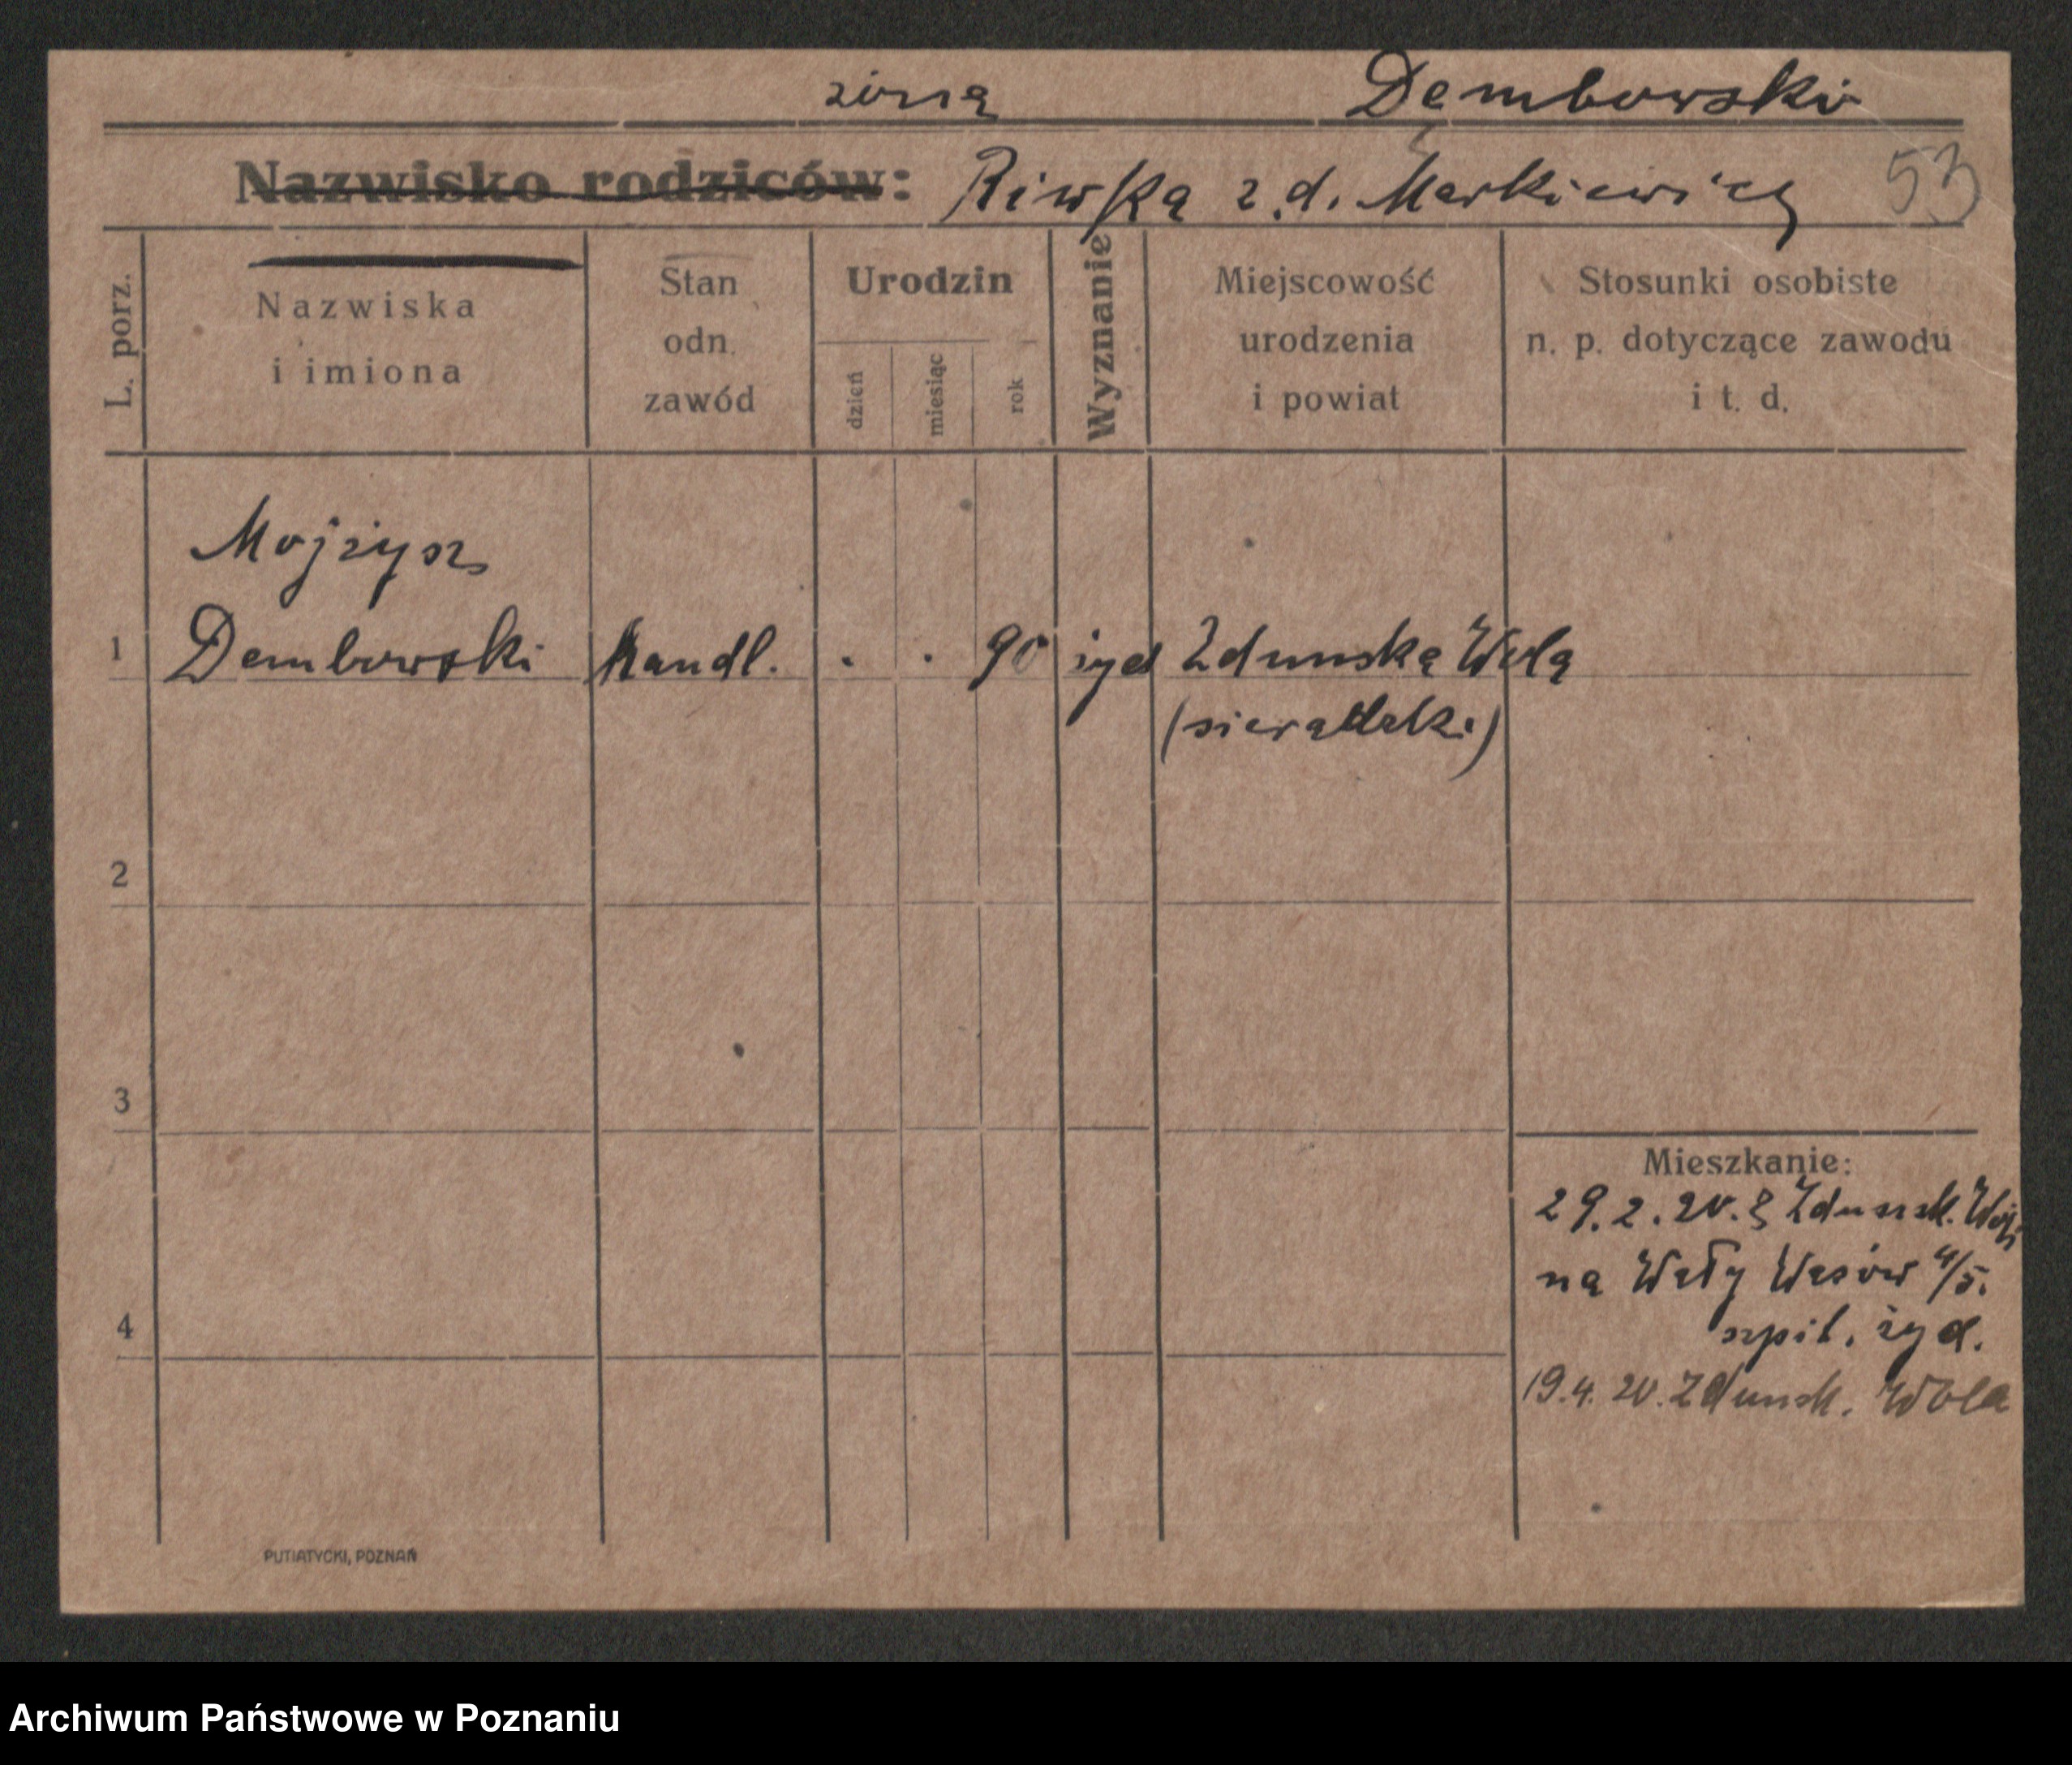 żona Dembowski
Nazwisko rodziców: Riwka z.d. Markiewicz 53
L. porz.
Nazwiska
i imiona
Stan
odn.
zawód
Urodzin
dzień
miesiąc
rok
Wyznanie
Miejscowość
urodzenia
i powiat
Stosunki osobiste
n. p. dotyczące zawodu
i t. d.
Mojżysz
1 Dembowski handl. . . 90 żyd Zduńska Wola
(sieradzki)
2
3
4
Mieszkanie:
29.2.20. z Zduńsk. Woj.
na Wały 4/5.
szpit. żyd.
19.4.20. Zduńsk. Wola
PUTIATYCKI, POZNAŃ
Archiwum Państwowe w Poznaniu